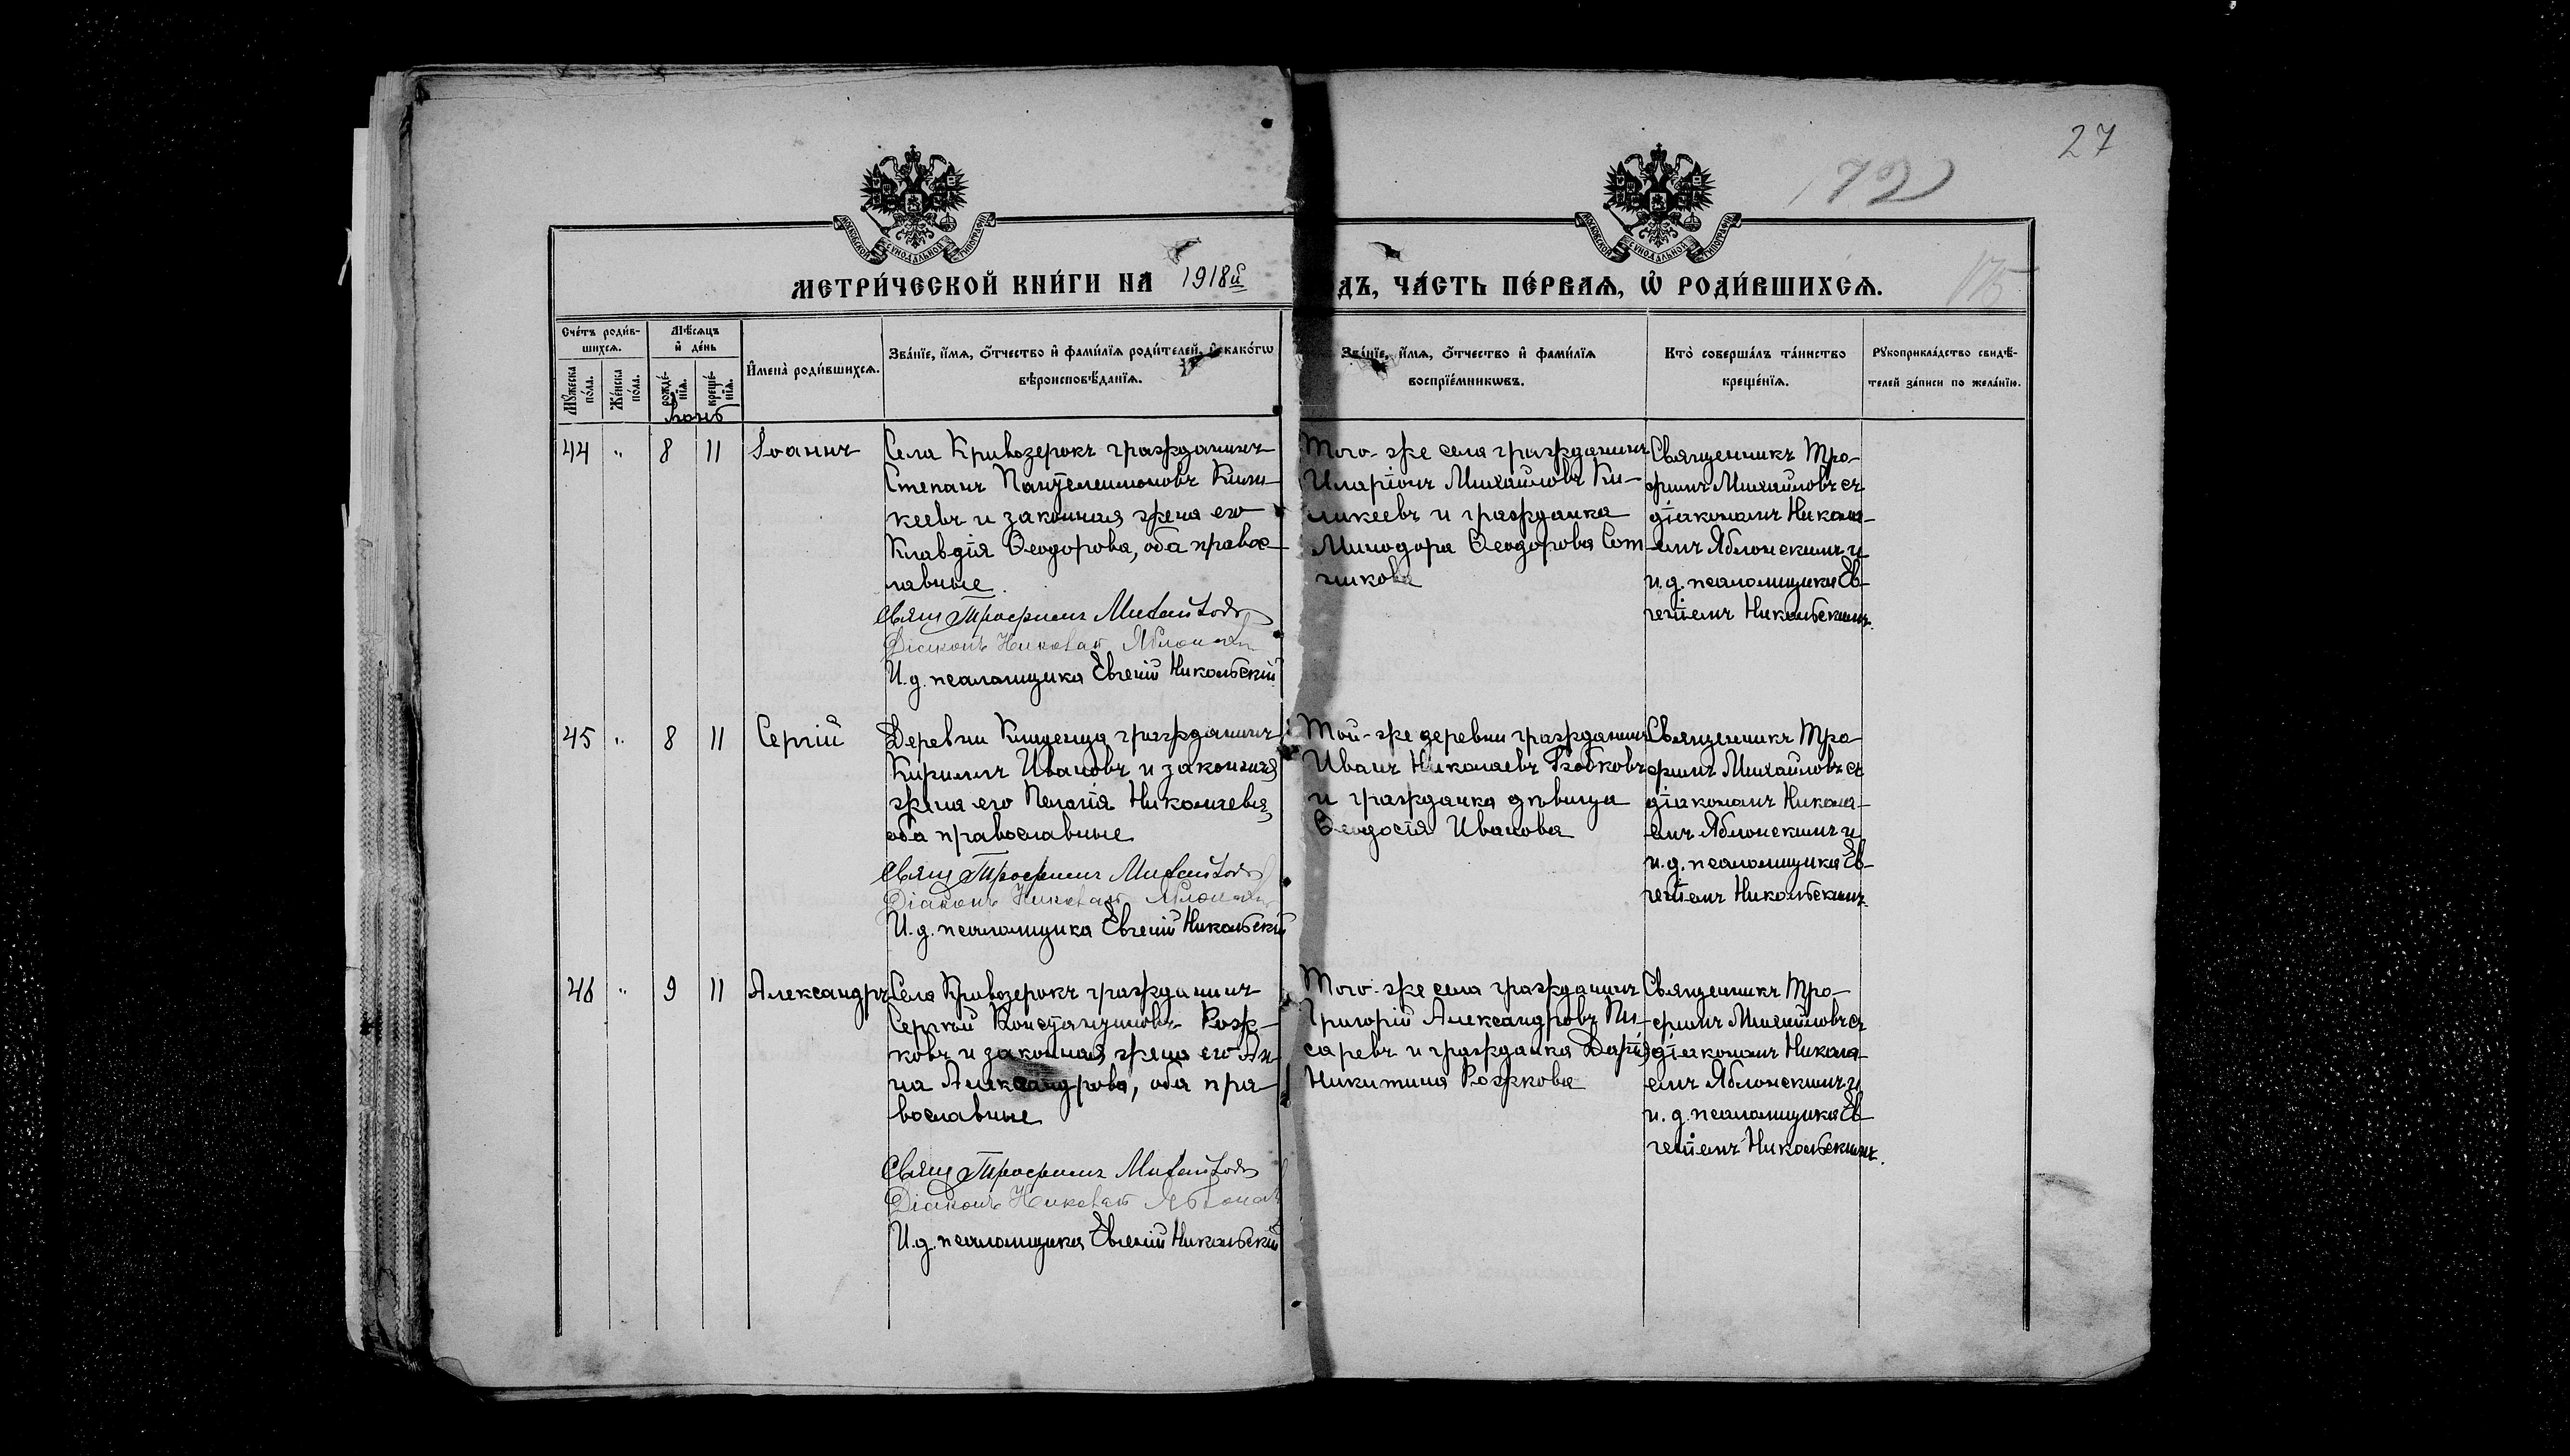 27
172
175
МОСКОВСКОЙ СѴНОДАЛЬНОЙ ТИПОГРАФІИ
МОСКОВСКОЙ СѴНОДАЛЬНОЙ ТИПОГРАФІИ
МЕТРИ́ЧЕСКОЙ КНИ́ГИ НА 1918й
ДЪ, ЧА́СТЬ ПЕ́РВАЯ, Ѡ҆ РОДИ́ВШИХСЯ.
Сче́тъ роди́в-
шихся.
Мꙋ́жеска по́ла.
Же́нска по́ла.
Мѣ́сяцъ
и҆ де́нь
рожде́-
нїя.
креще́-
нїя.
Іюнь
И҆мена̀ роди́вшихся.
Зва́нїе, и҆́мя, о҆́тчество и҆ фами́лїя роди́телей, и҆ како́гѡ
вѣроисповѣ́данїя.
Зва́нїе, и҆́мя, о҆́тчество и҆ фами́лїя
воспрїе́мникѡвъ.
Кто̀ соверша́лъ та́инство
креще́нїя.
Рꙋкоприкла́дство свидѣ́-
телей за́писи по жела́нїю.
44 " 8 11 Іоаннъ
Села Кривозерокъ гражданинъ
Степанъ Пантелеимоновъ Кили-
кеевъ и законная жена его
Клавдія Ѳеодорова, оба правос-
лавные.
Свящ Трофимъ Михайловъ
Діаконъ Николай Яблонскій
И. д. псаломщика Евгеній Никольскій
Того-же села гражданинъ
Иларіонъ Михайловъ Ки-
ликеевъ и гражданка
Минодора Ѳеодорова Сот-
никова
Священникъ Тро-
фимъ Михайловъ съ
діакономъ Никола-
емъ Яблонскимъ и
и. д. псаломщика Ев-
геніемъ Никольскимъ.
45 " 8 11 Сергій
Деревни гражданинъ
Кириллъ Ивановъ и законная
жена его Пелагія Николаева,
оба православные
Свящ Трофимъ Михайловъ
Діаконъ Николай Яблонскій
И. д. псаломщика Евгеній Никольскій
Той-же деревни гражданинъ
Иванъ Николаевъ
и гражданка дѣвица
Ѳеодосія Иванова
Священникъ Тро-
фимъ Михайловъ съ
діакономъ Никола-
емъ Яблонскимъ и
и. д. псаломщика Ев-
геніемъ Никольскимъ.
46 " 9 11 Александръ
Села Кривозерокъ гражданинъ
Сергѣй Константиновъ Рож-
ковъ и законная жена его Ан-
на Александрова, оба пра-
вославные
Свящ Трофимъ Михайловъ
Діаконъ Николай Яблонскій
И. д. псаломщика Евгеній Никольскій
Того-же села гражданинъ
Григорій Александровъ Пи-
саревъ и гражданка Дарія
Никитина Рожкова
Священникъ Тро-
фимъ Михайловъ съ
діакономъ Никола-
емъ Яблонскимъ и
и. д. псаломщика Ев-
геніемъ Никольскимъ.